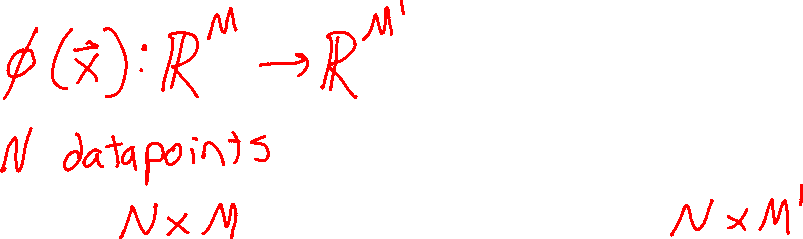 ϕ(x⃗): ℝᴹ → ℝᴹ'
N datapoints
N × M N × M'